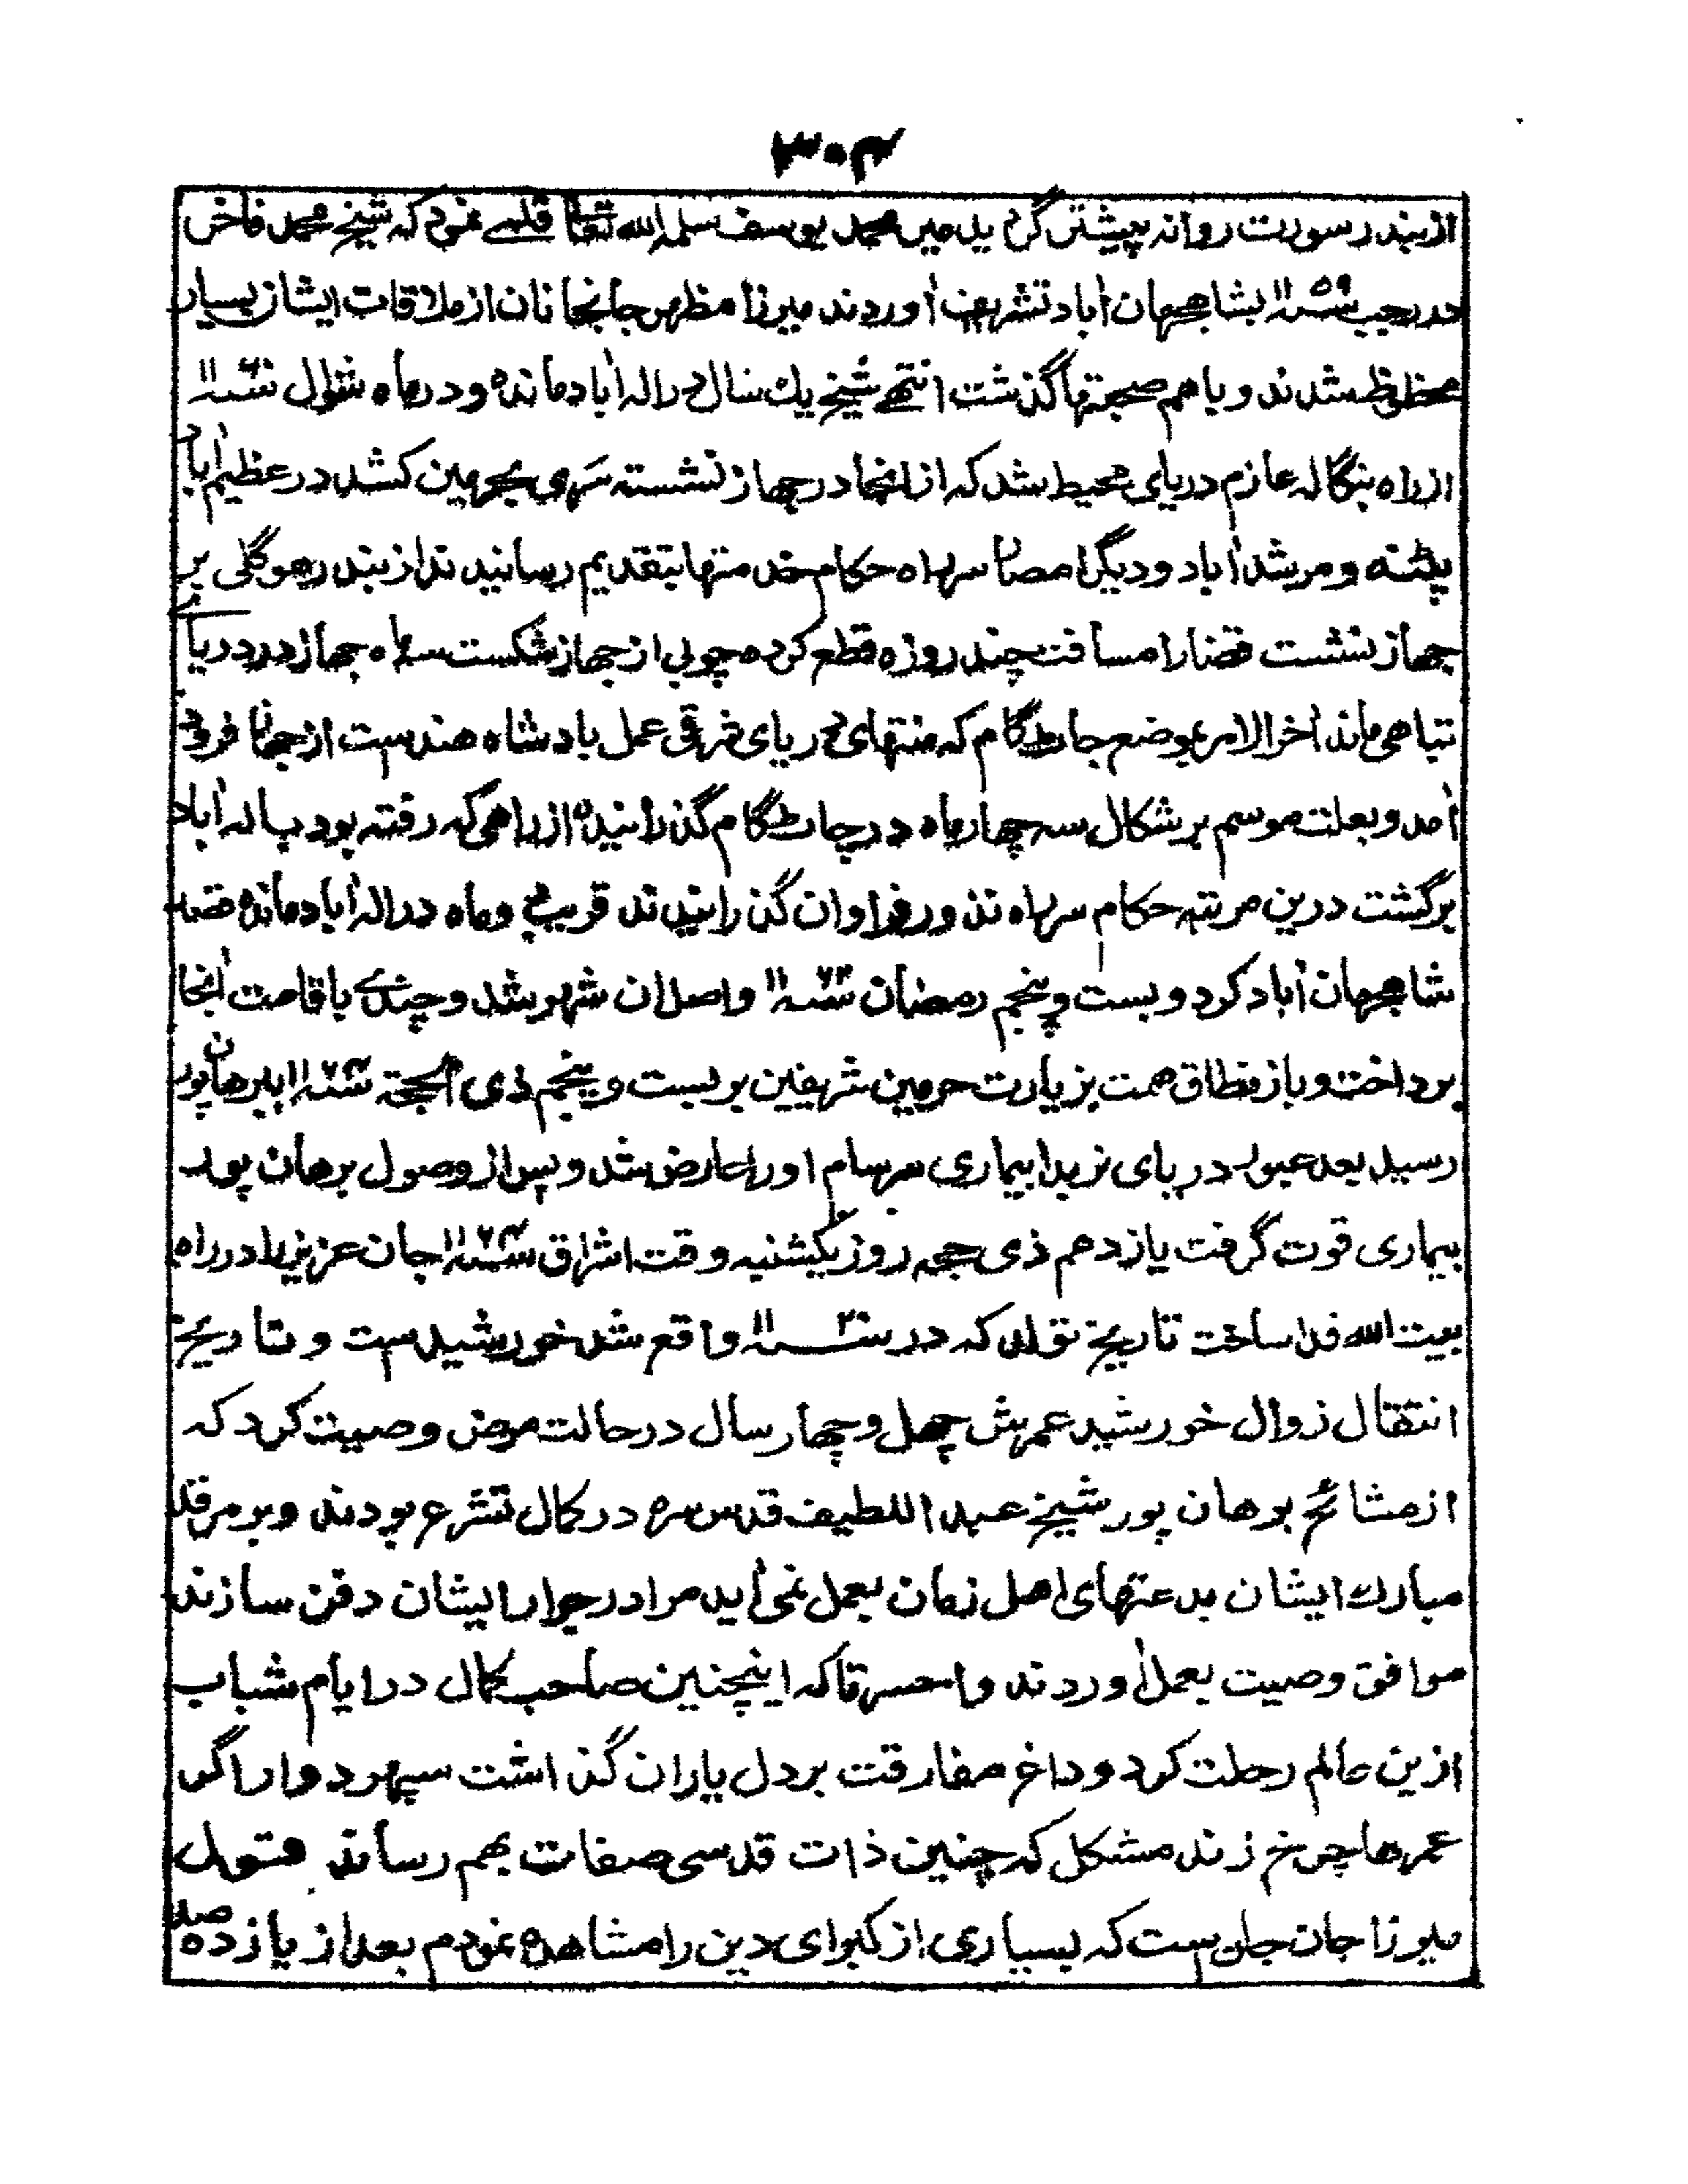 ۳۰۴
از بندر سورت روانه پیشتر گردید میر محمد یوسف سلمه الله تعالیٰ قلمی نمود که شیخ محمد فاخر
در رجب سنه ۱۱۵۹ بشاهجهان آباد تشریف آوردند میرزا مظهر جانجانان از ملاقات ایشان بسیار
محظوظ شدند و باهم صحبتها گذشت انتهی شیخ یك سال در اله آباد مانده و در ماه شوال سنه ۱۱
از راه بنگاله عازم دریای محیط شد که از انجا در جهاز نشسته سری بحرمین کشد در عظیم آباد
پٹنه و مرشد آباد و دیگر امصار سر راه حکام خدمتها بتقدیم رسانیدند از بندر هوگلی بر
جهاز نشست قضارا مسافت چند روزه قطع کرده چوبی از جهاز شکست سه ماه جهاز در دریای
تباهی ماند آخر الامر بموضع چاٹگام که منتهای دریای شرقی عمل بادشاه هندست از جهاز فرود
آمد و بعلت موسم برشکال سه چهار ماه در چاٹگام گذرانیده از راهی که رفته بود باله آباد
برگشت درین مرتبه حکام سر راه نذور فراوان گذرانیدند قریب دو ماه در اله آباد مانده قصد
شاهجهان آباد کرد و بست و پنجم رمضان سنه ۱۱۶۳ واصل آن شهر شد و چندے باقامت آنجا
پرداخت و باز نطاق همت بزیارت حرمین شریفین بر بست و پنجم ذی الحجة سنه ۱۱۶۴ ببرهان پور
رسید بعد عبور دریای نربدا بیماری سرسام او را عارض شد و پس از وصول برهان پور
بیماری قوت گرفت یازدهم ذی حجه روز یکشنبه وقت اشراق سنه ۱۱۶۴ جان عزیز را در راه
بیت الله فدا ساخت تاریخ تولد که در سنه ۱۱۲۰ واقع شد خورشید ست و تاریخ
انتقال زوال خورشید عمرش چهل و چهار سال در حالت مرض وصیت کرد که
از مشائخ برهان پور شیخ عبد اللطیف قدس سره در کمال تشرع بودند و بر مرقد
مبارك ایشان بدعتهای اهل زمان بعمل نمی آید مرا در جوار ایشان دفن سازند
موافق وصیت بعمل آوردند واحسرتا که اینچنین صاحب کمال در ایام شباب
ازین عالم رحلت کرد و داغ مفارقت بر دل یاران گذاشت سپهر دوار اگر
عمرها چرخ زند مشکل که چنین ذات قدسی صفات بهم رساند قول
میرزا جان جان ست که بسیاری از کبرای دین را مشاهده نمودم بعد از یازده صد